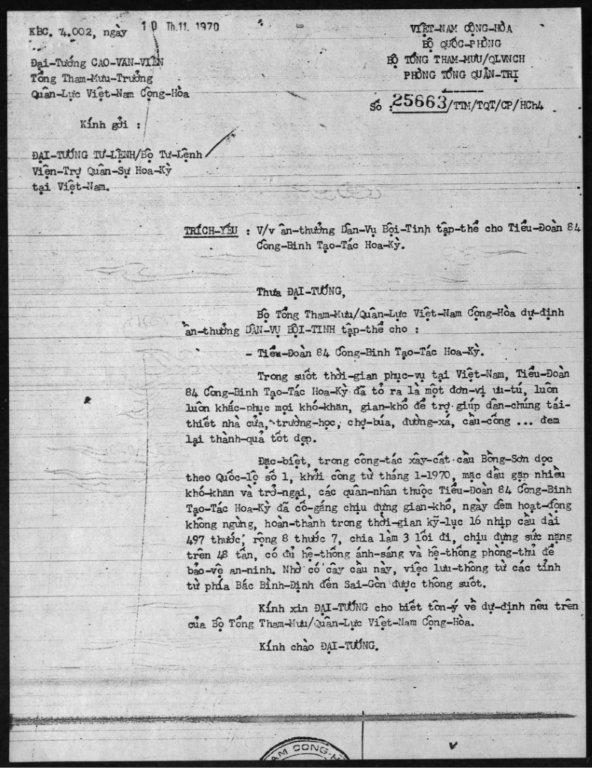 KBC. 4.002, ngày 10 Th.11. 1970
VIỆT-NAM CỘNG-HÒA
BỘ QUỐC-PHÒNG
BỘ TỔNG THAM-MƯU/QLVNCH
PHÒNG TỔNG QUẢN-TRỊ
Số : 25663/TTM/TQT/CP/HCh4
Đại-Tướng CAO-VĂN-VIÊN
Tổng Tham-Mưu-Trưởng
Quân-Lực Việt-Nam Cộng-Hòa
Kính gởi :
ĐẠI-TƯỚNG TƯ-LỆNH/Bộ Tư-Lệnh
Viện-Trợ Quân-Sự Hoa-Kỳ
tại Việt-Nam.
TRÍCH-YẾU : V/v ân-thưởng Dân-Vụ Bội-Tinh tập-thể cho Tiểu-Đoàn 84
Công-Binh Tạo-Tác Hoa-Kỳ.
Thưa ĐẠI-TƯỚNG,
Bộ Tổng Tham-Mưu/Quân-Lực Việt-Nam Cộng-Hòa dự-định
ân-thưởng DÂN-VỤ BỘI-TINH tập-thể cho :
- Tiểu-Đoàn 84 Công-Binh Tạo-Tác Hoa-Kỳ.
Trong suốt thời-gian phục-vụ tại Việt-Nam, Tiểu-Đoàn
84 Công-Binh Tạo-Tác Hoa-Kỳ đã tỏ ra là một đơn-vị ưu-tú, luôn
luôn khắc-phục mọi khó-khăn, gian-khổ để trợ-giúp dân-chúng tái-
thiết nhà cửa, trường-học, chợ-búa, đường-xá, cầu-cống ... đem
lại thành-quả tốt đẹp.
Đặc-biệt, trong công-tác xây-cất cầu Bồng-Sơn dọc
theo Quốc-lộ số 1, khởi công từ tháng 1-1970, mặc dầu gặp nhiều
khó-khăn và trở-ngại, các quân-nhân thuộc Tiểu-Đoàn 84 Công-Binh
Tạo-Tác Hoa-Kỳ đã cố-gắng chịu đựng gian-khổ, ngày đêm hoạt-động
không ngừng, hoàn-thành trong thời-gian kỷ-lục 16 nhịp cầu dài
497 thước, rộng 8 thước 7, chia làm 3 lối đi, chịu đựng sức nặng
trên 48 tấn, có đủ hệ-thống ánh-sáng và hệ-thống phòng-thủ để
bảo-vệ an-ninh. Nhờ có cây cầu này, việc lưu-thông từ các tỉnh
từ phía Bắc Bình-Định đến Sài-Gòn được thông suốt.
Kính xin ĐẠI-TƯỚNG cho biết tôn-ý về dự-định nêu trên
của Bộ Tổng Tham-Mưu/Quân-Lực Việt-Nam Cộng-Hòa.
Kính chào ĐẠI-TƯỚNG.